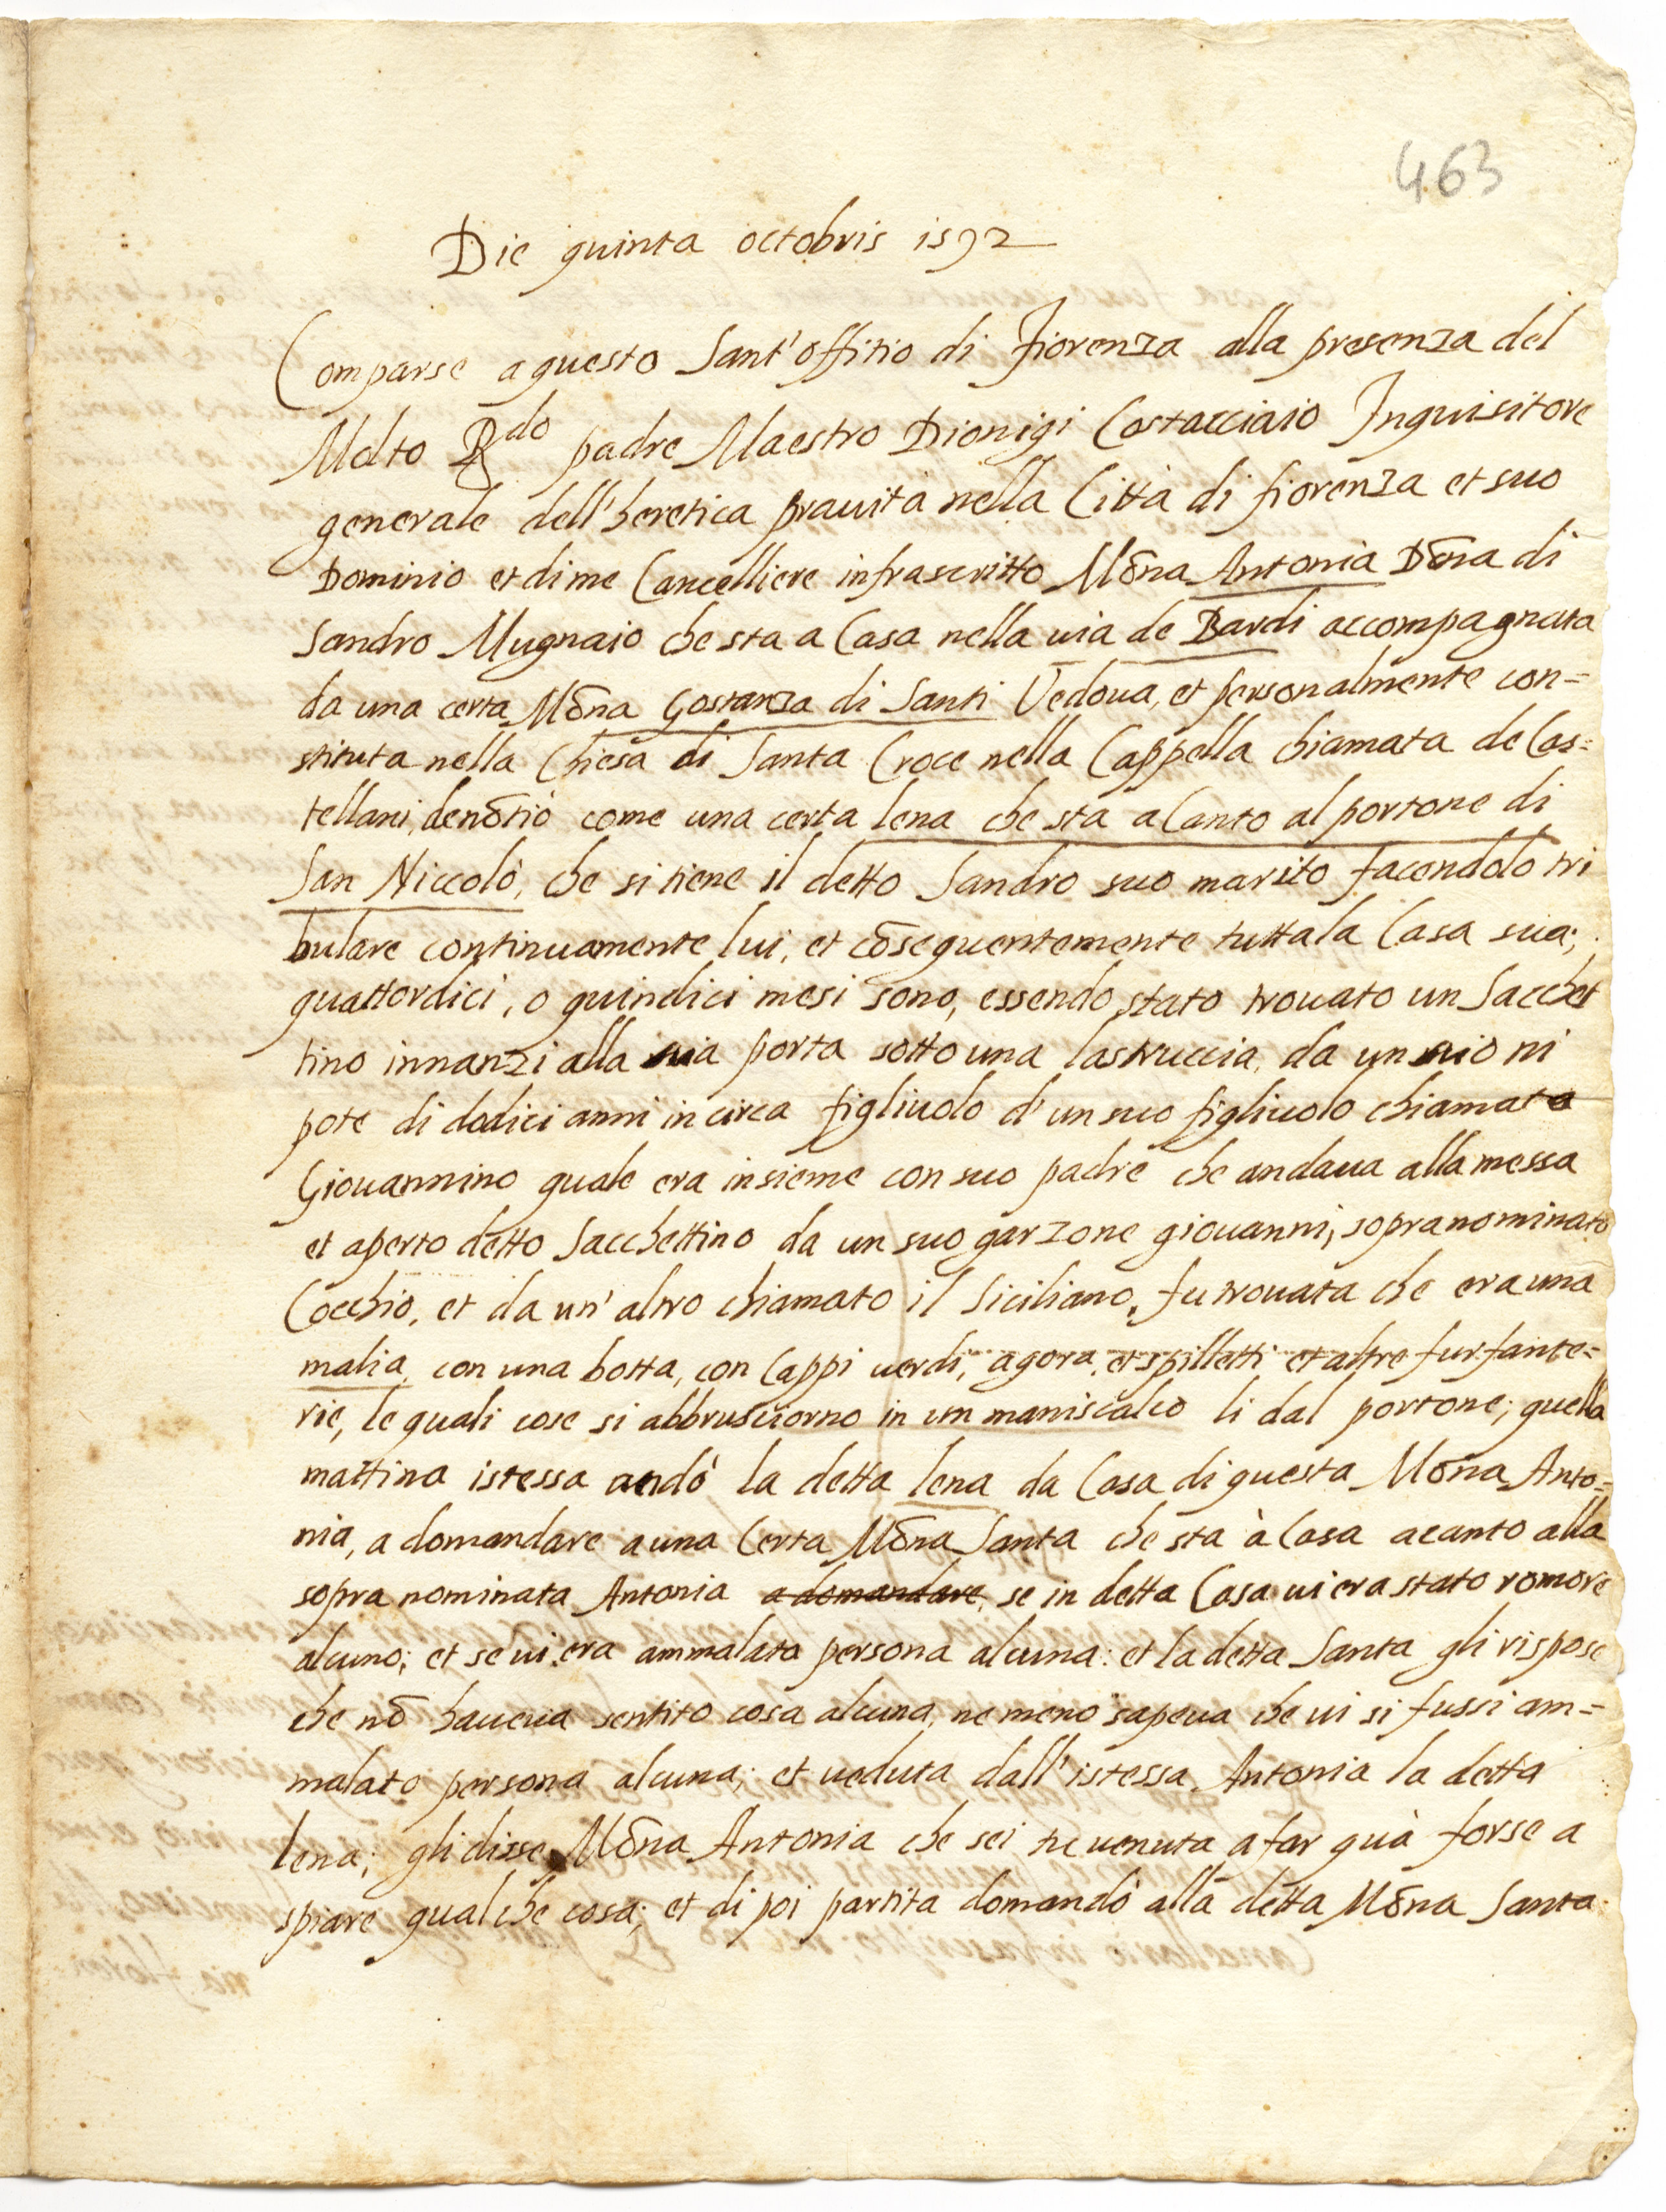 463
Die quinta octobris 1592
Comparse a questo Sant'offitio di Fiorenza alla presenza del
Molto R^do padre Maestro Dionigi Costacciaio Inquisitore
generale dell'heretica prauita nella Città di fiorenza et suo
Dominio et di me Cancelliere infrascritto Mõna Antonia Dõna di
Sandro Mugnaio che sta a Casa nella uia de Bardi accompagnata
da una certa Mõna Gostanza di Santi Vedoua, et personalmente con=
stituta nella Chiesa di Santa Croce nella Cappella chiamata de Cas=
tellani, denõtiò come una certa lena che sta a Canto al portone di
San Niccolò, che si tiene il detto Sandro suo marito facendolo tri
bulare continuamente lui, et cõsequentemente tutta la Casa sua;
quattordici, o quindici mesi sono, essendo stato trouato un Sacchet
tino innanzi alla sua porta sotto una lastruccia, da un suo ni
pote di dodici anni in circa figliuolo d'un suo figliuolo chiamato
Giouannino quale era insieme con suo padre che andaua alla messa
et aperto detto Sacchettino da un suo garzone giouanni, sopranominato
Cocchio, et da un'altro chiamato il Siciliano, fu trouata che era una
malia, con una botta, con Cappi uerdi, agora, et spilletti et altre furfante=
rie, le quali cose si abbrusciorno in un maniscalco li dal portone; quella
mattina istessa andò la detta lena da Casa di questa Mõna Anto=
nia, a domandare a una Certa Mõna Santa che sta à Casa acanto alla
sopra nominata Antonia a domandare, se in detta Casa ui era stato romore
alcuno; et se ui era ammalata persona alcuna: et la detta Santa gli rispose
che nõ haueua sentito cosa alcuna, ne meno sapeua che ui si fussi am=
malato persona alcuna; et ueduta dall'istessa Antonia la detta
lena; gli disse Mõna Antonia che sei tu uenuta a far quà forse a
spiare qualche cosa; et di poi partita domandò alla detta Mõna Santa